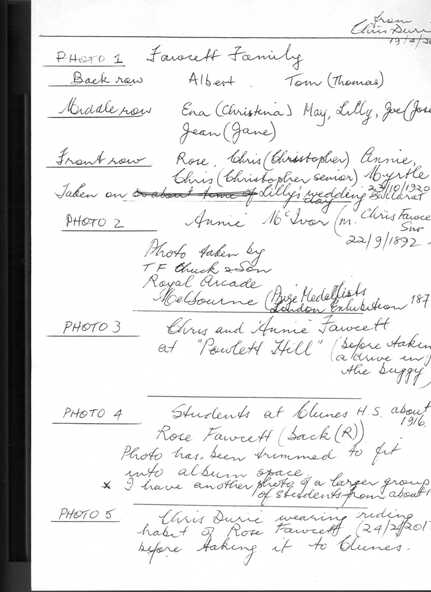 from
Chris Durie
PHOTO 1 Fawcett Family
Back row Albert Tom (Thomas)
Middle row Ena (Christina) May, Lilly, Joe (Jose
Jean (Jane)
Front row Rose, Chris (Christopher) Annie,
Chris (Christopher senior) Myrtle
Taken on to about time of Lilly's wedding day Ballarat 23/10/1920
PHOTO 2 Annie McIvor (m. Chris Fawce
Snr
22/9/1892
Photo taken by
T F Chuck & Son
Royal Arcade
Melbourne (Prize Medallists
London Exhibition 187
PHOTO 3 Chris and Annie Fawcett
at "Powlett Hill" (before takin
a drive in
the buggy)
PHOTO 4 Students at Clunes H.S. about
1916.
Rose Fawcett (back (R))
Photo has been trimmed to fit
into album space.
x I have another photo of a larger group
of students from about 1
PHOTO 5 Chris Durie wearing riding
habit of Rose Fawcett (24/2/201
before taking it to Clunes.